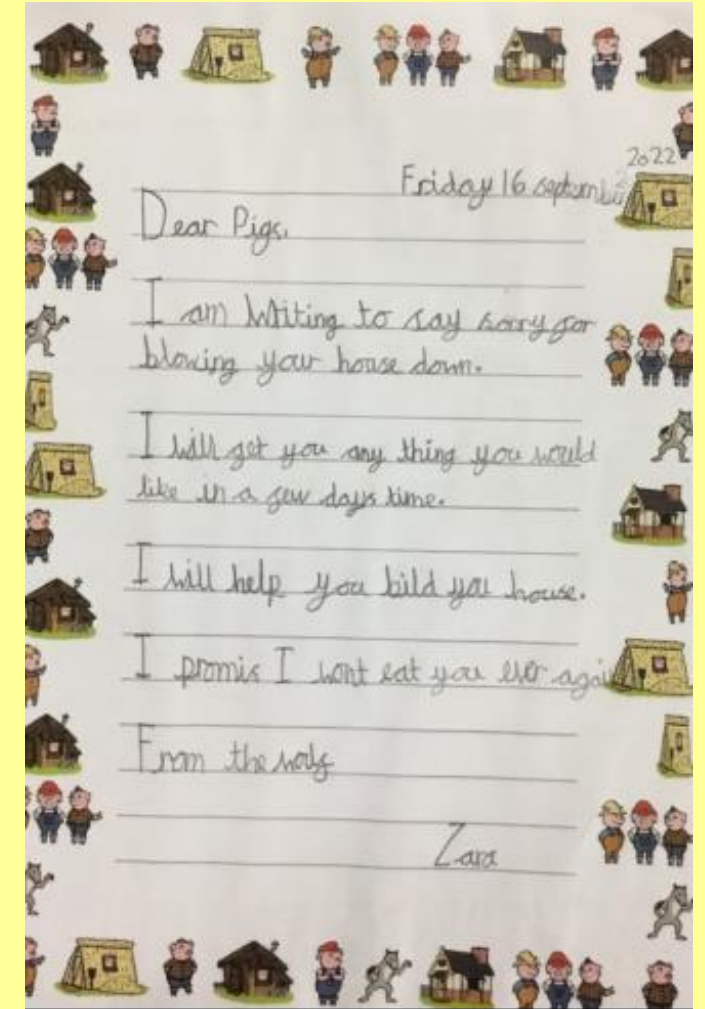 2022
Friday 16 september
Dear Pigs,
I am Writing to say sorry for
blowing your house down.
I will get you any thing you would
like in a few days time.
I will help you bild you house.
I promis I wont eat you ever again
From the wolf
Zara